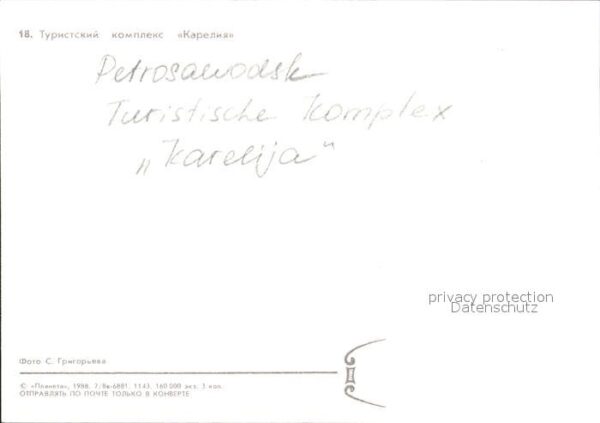 18. Туристский комплекс «Карелия»
Petrosawodsk
Turistische Komplex
„Karelija“
privacy protection
Datenschutz
Фото С. Григорьева
© «Планета», 1988. 7/Вк-6881. 1143. 160 000 экз. 3 коп.
ОТПРАВЛЯТЬ ПО ПОЧТЕ ТОЛЬКО В КОНВЕРТЕ